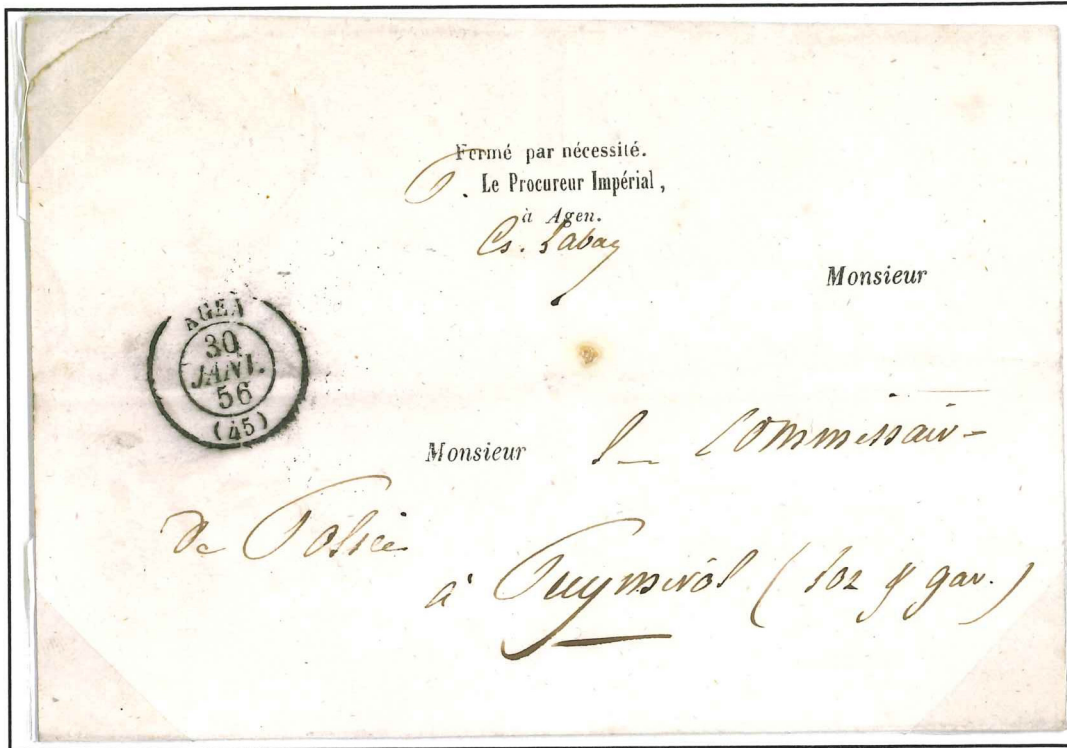 Fermé par nécessité.
P. Le Procureur Impérial,
à Agen.
Cs. Labay
Monsieur
AGEN
30
JANV.
56
(45)
Monsieur le Commissaire
de Police
à Puymirol (Lot & gar.)